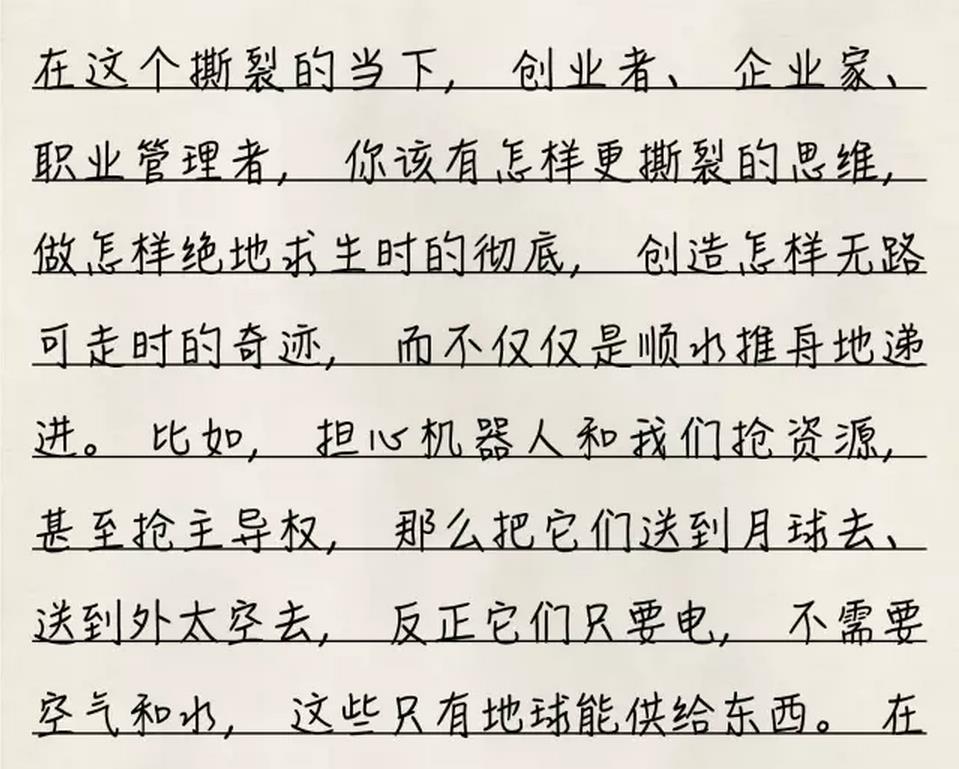 在这个撕裂的当下, 创业者、企业家、
职业管理者, 你该有怎样更撕裂的思维,
做怎样绝地求生时的彻底, 创造怎样无路
可走时的奇迹, 而不仅仅是顺水推舟地递
进。比如, 担心机器人和我们抢资源,
甚至抢主导权, 那么把它们送到月球去、
送到外太空去, 反正它们只要电, 不需要
空气和水, 这些只有地球能供给东西。在